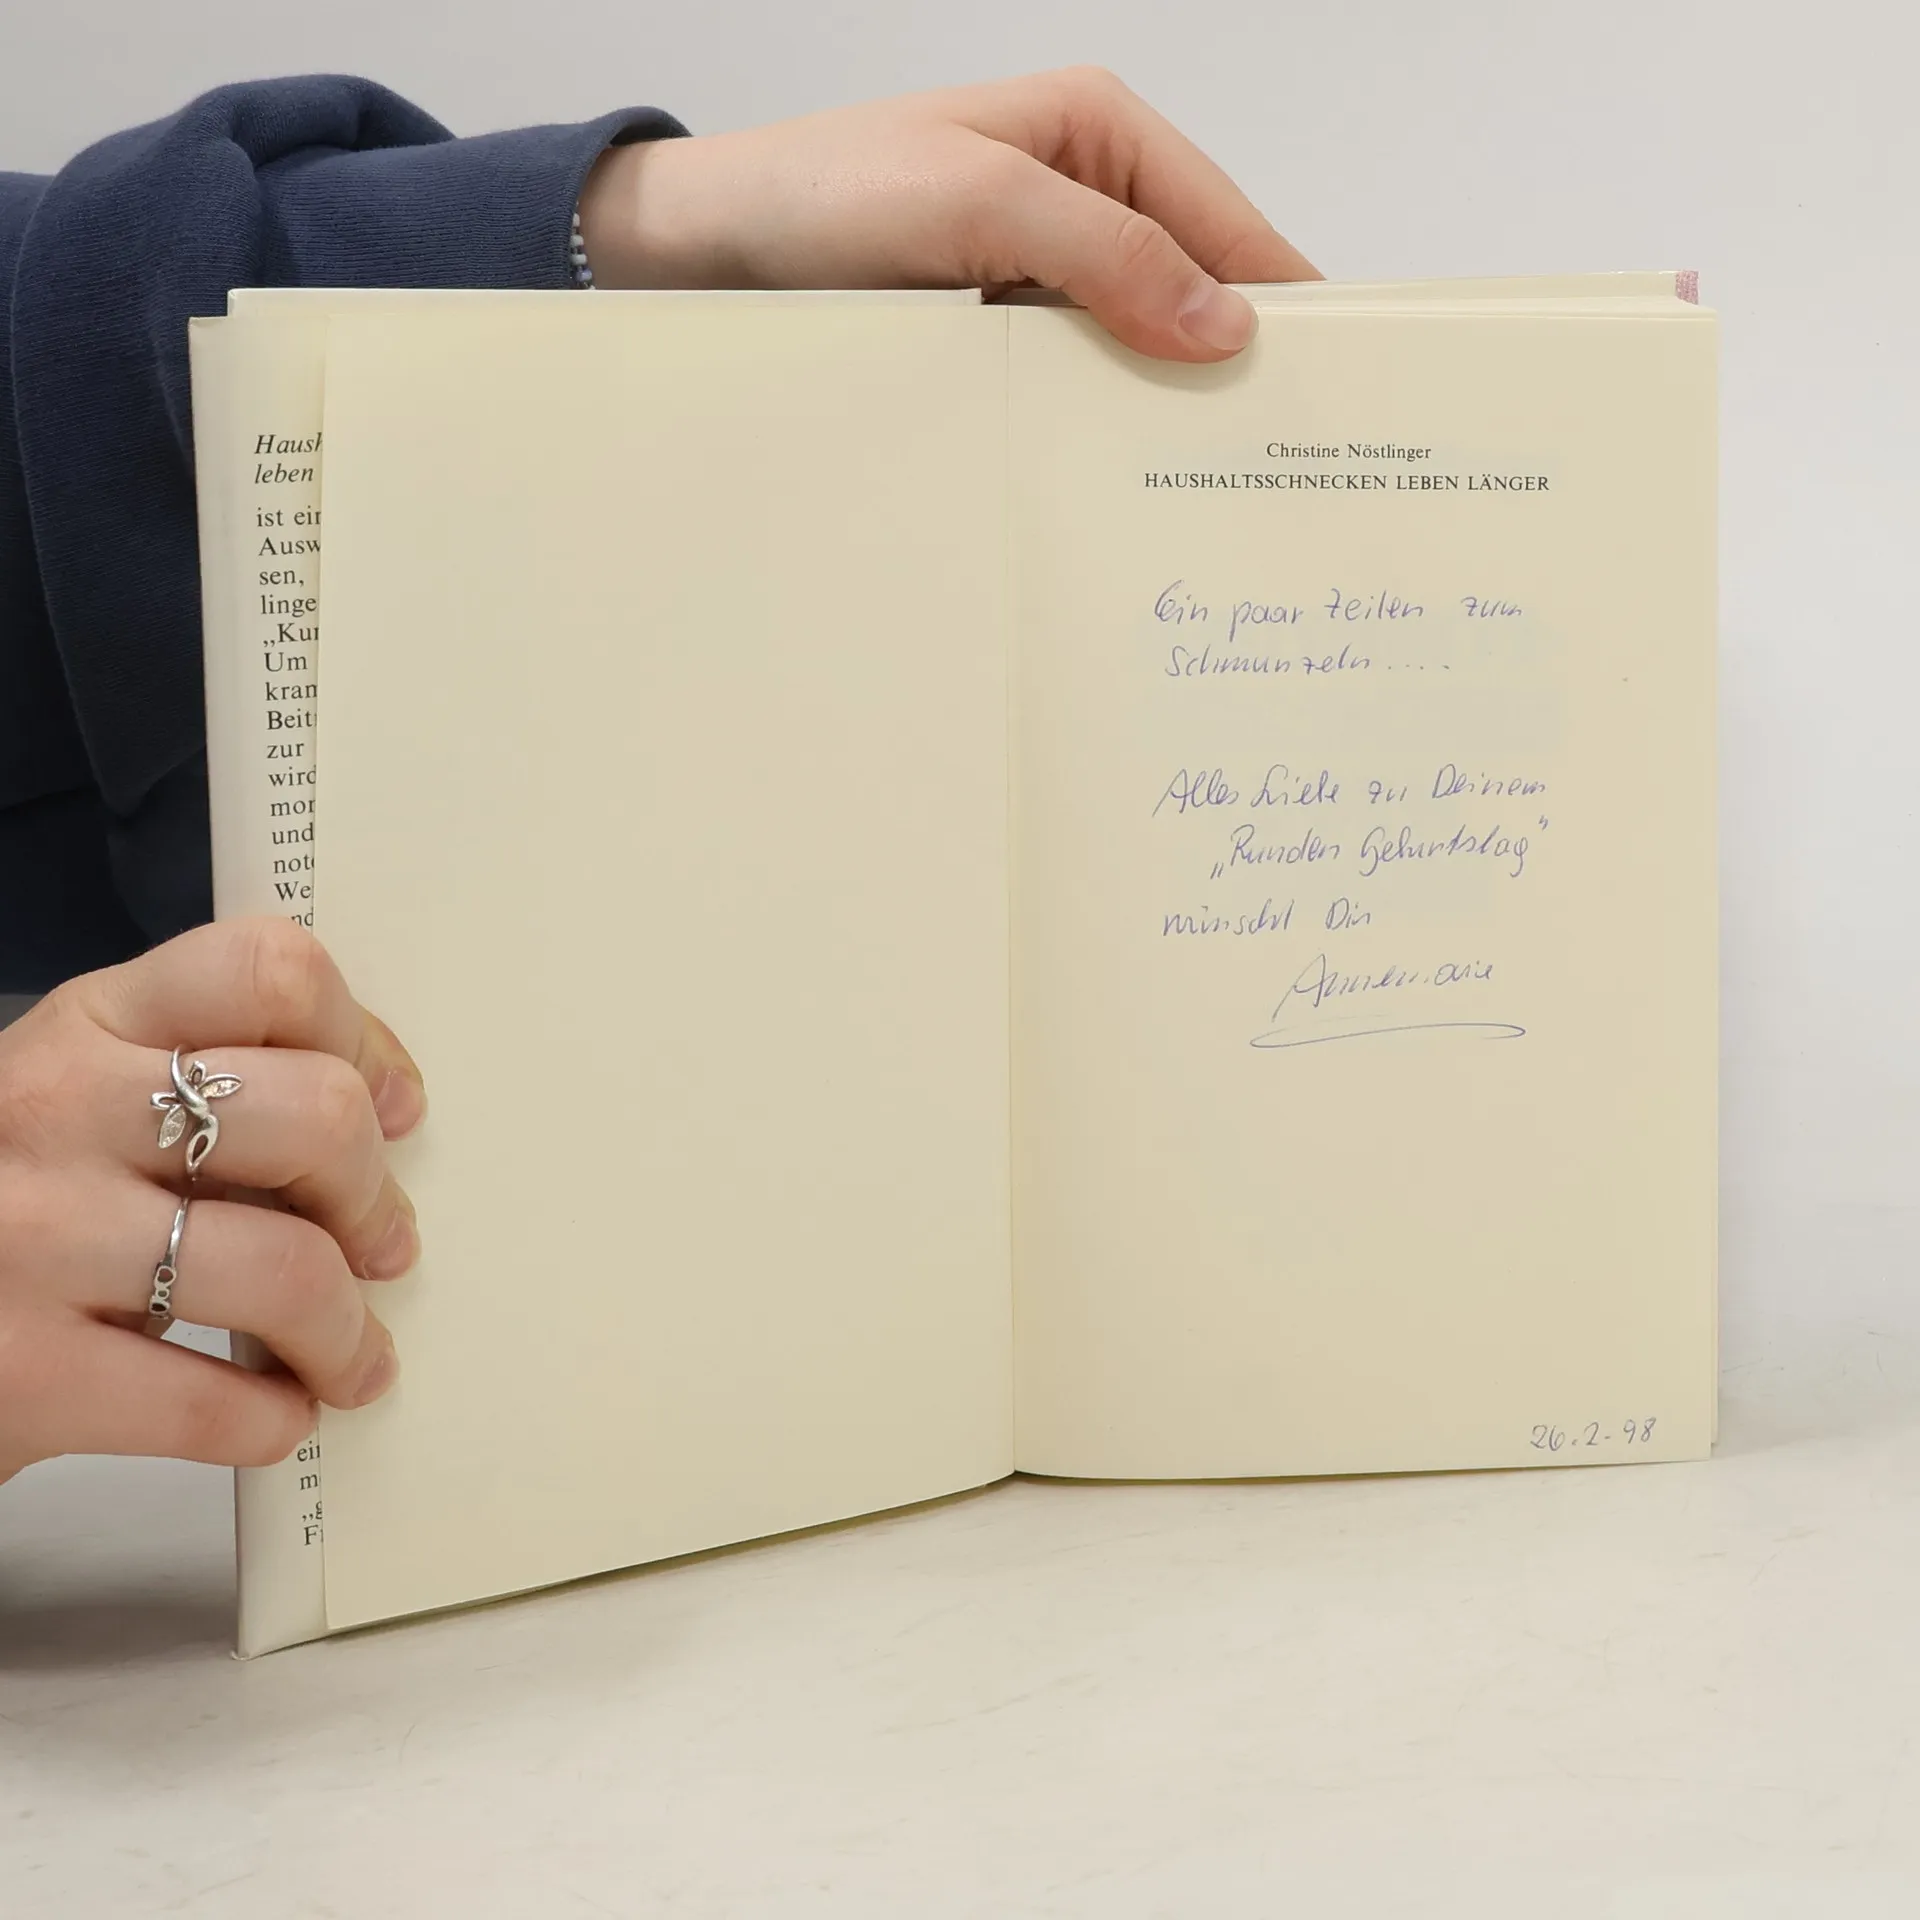 Haush
leben
ist ein
Ausw
sen,
linge
„Kur
Um
kram
Beitr
zur
wird
mor
und
note
We
nd
ein
m
„g
F
Christine Nöstlinger
HAUSHALTSSCHNECKEN LEBEN LÄNGER
Ein paar Zeilen zum
Schmunzeln ....
Alles Liebe zu Deinem
„Runden Geburtstag"
wünscht Dir
Annemarie
26.2.98